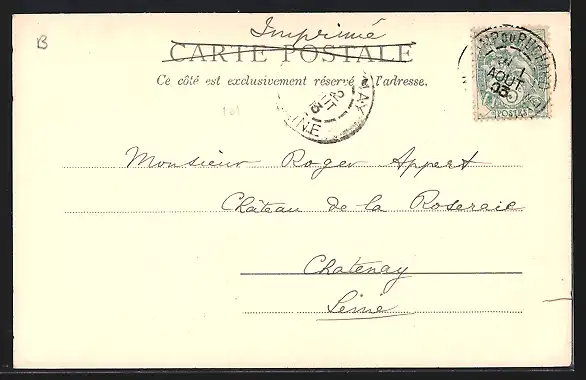 B
Imprimé
CARTE POSTALE
Ce côté est exclusivement réservé à l'adresse.
1 AOUT 03
POSTES
Monsieur Roger Appert
Château de la Roseraie
Chatenay
Seine